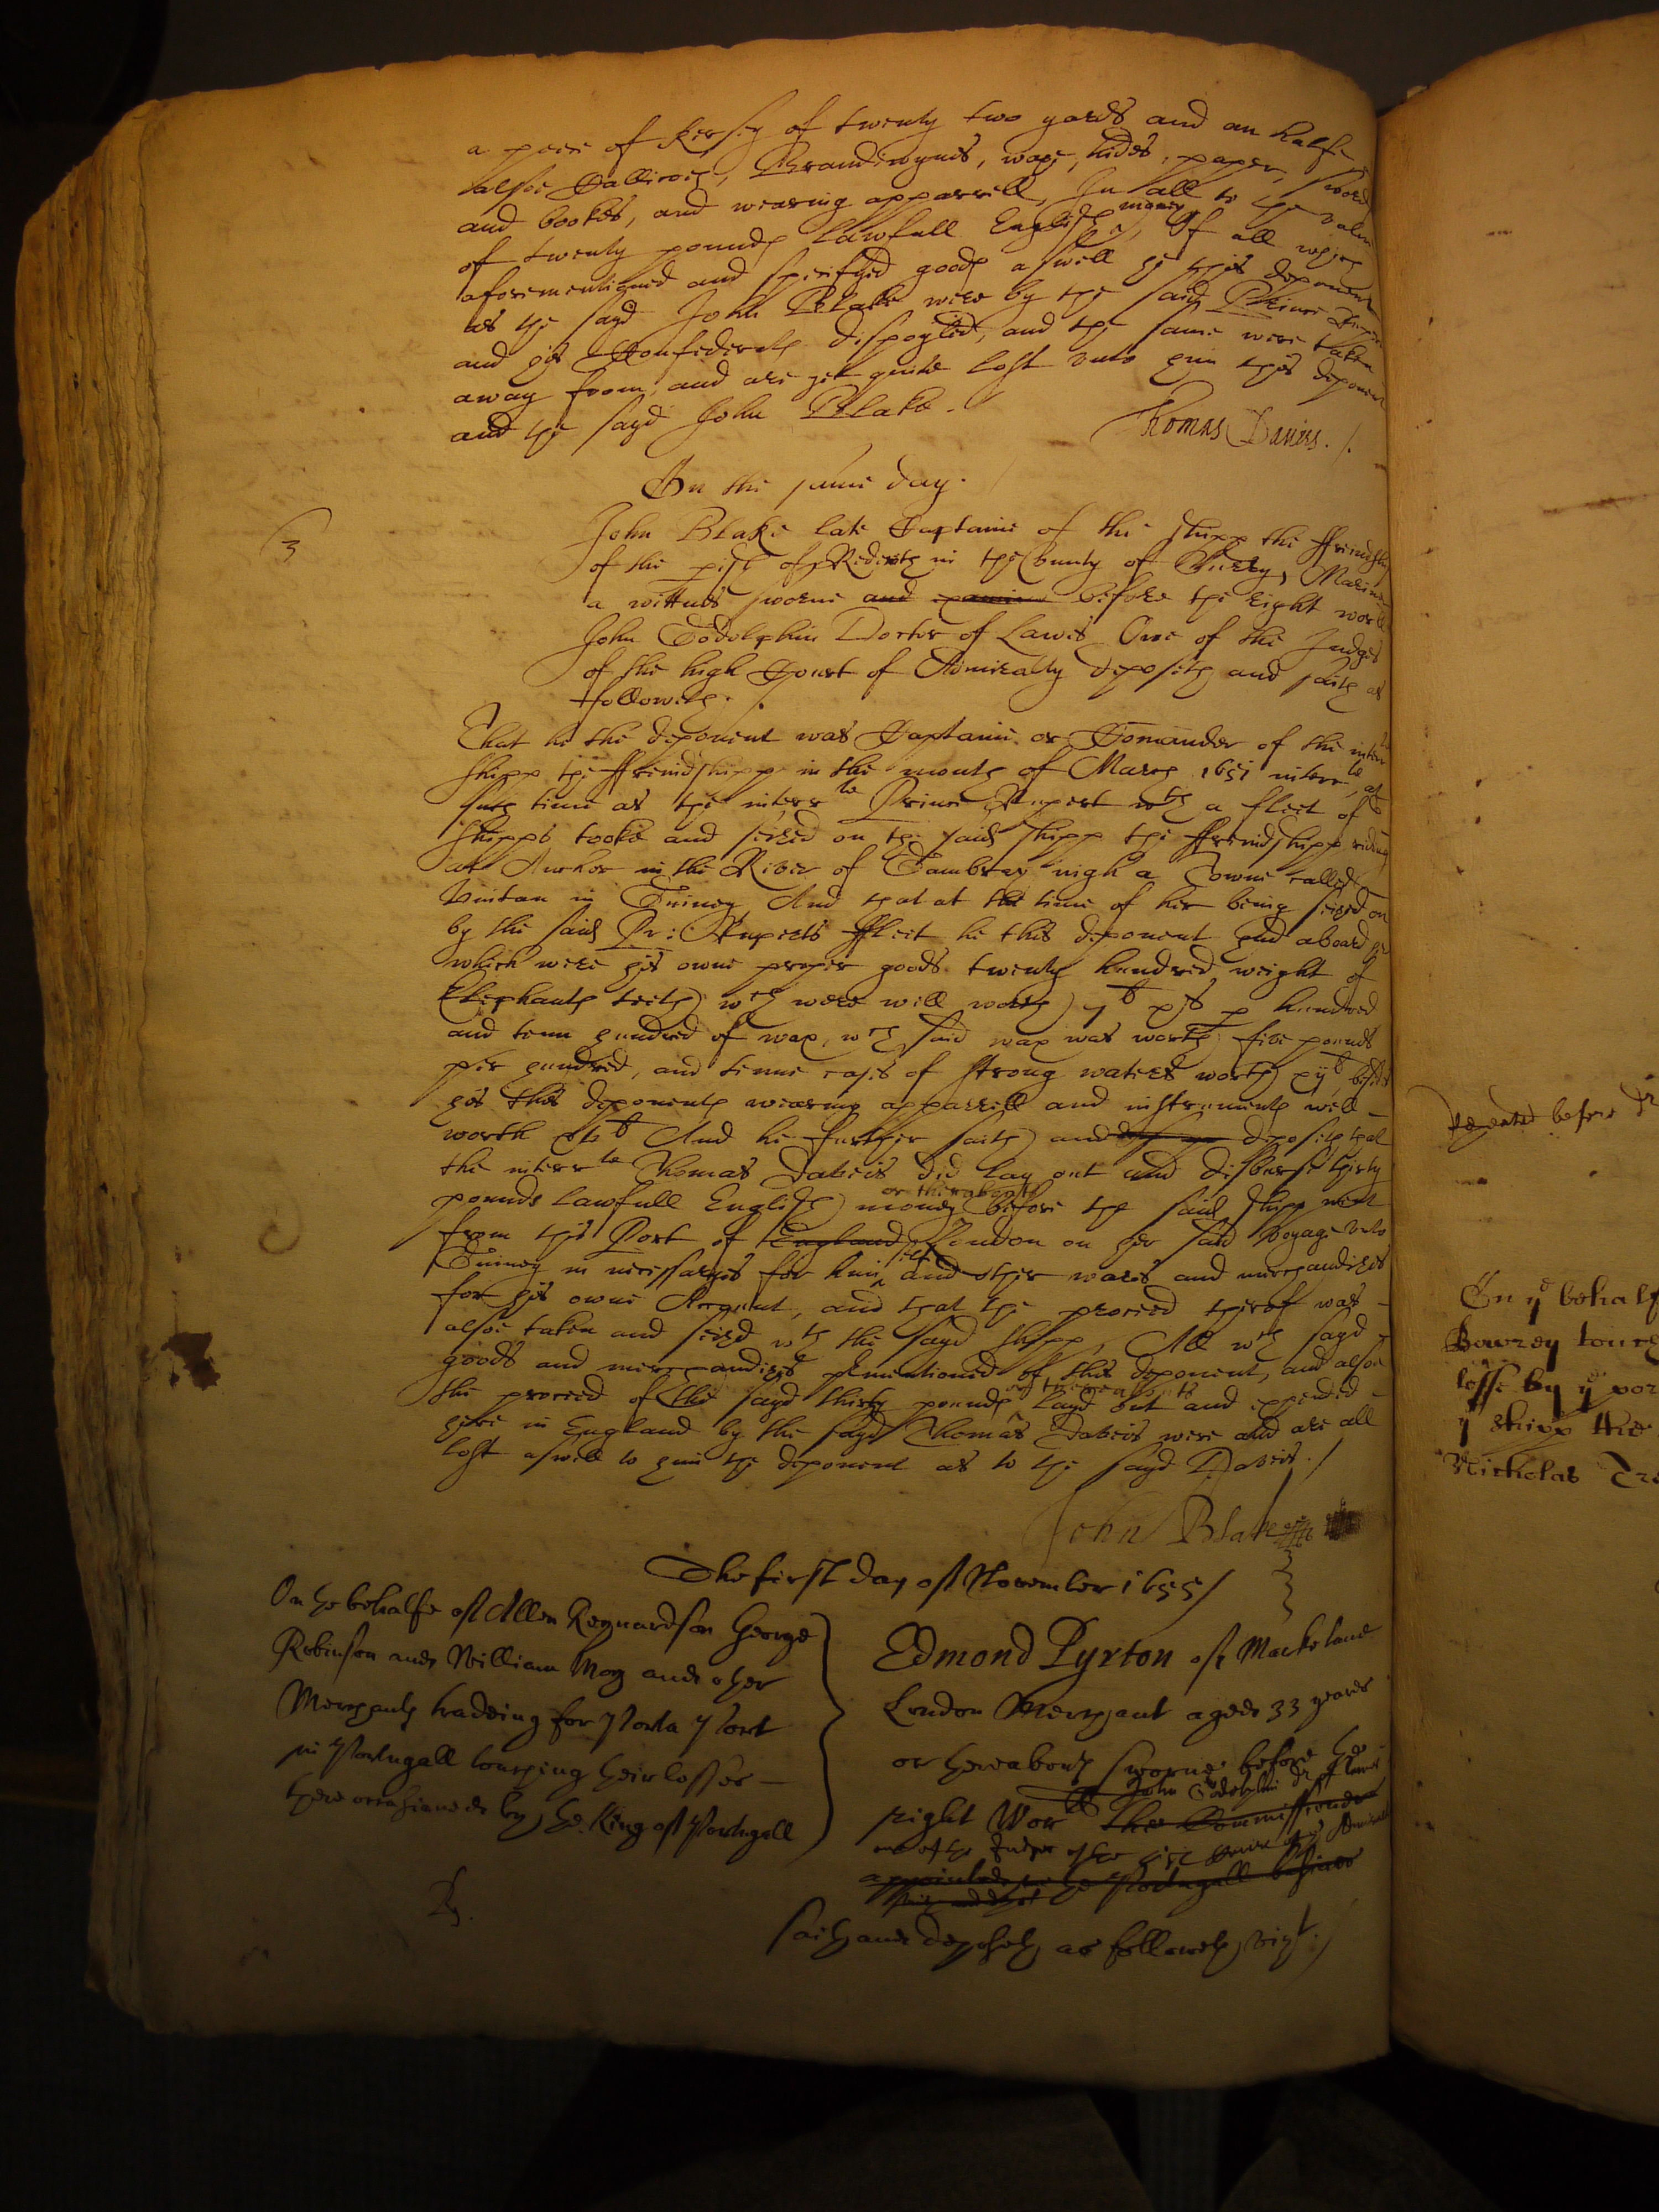 a peece of Kersey of twenty two yards and an halfe
alsoe Callicoes, Brandewynes, waxe, hides, paper, sword
and bookes, and wearing apparrell, In all to the value
of twenty pounds lawfull English money, Of all which
aforementioned and specifyed goods aswell he this deponent
as the sayd John Blake were by the said Prince Rupert
and his Confederats dispoyled, and the same were taken
away from, and are yet quite lost unto him this deponent
and the sayd John Blake.
Thomas Davies ./.
On the same day.
3
John Blake late Captaine of the shipp the ffriendshipp
of the pish of Redereth in the County of Surry, Mariner
a wittnes sworne and examined before the right worll
John Godolphin Doctor of Lawes One of the Judges
of the high Court of Admiralty deposeth and saith as
followeth ./.
That he the deponent was Captaine or Comander of the interr
shipp the ffreindshipp in the month of March 1651 interrte, at
such time as the interrte Prince Rupert wth a fleet of
shipps tooke and seized on the said shipp the ffreindshipp riding
at Anchor in the River of Gambray nigh a Towne called
Vintan in Guiney And that at the time of her being seized on
by the said Pr: Ruperts ffleet he this deponent had aboard her
which were his owne proper goods twenty hundred weight of
Elephants teeth, wch were well worth 7li p hundred
and tenn hundred of wax, wch said wax was worth five pounds
per hundred, and tenne cases of strong waters worth xijli besides
his this deponents wearing apparrell and instruments well
worth li And he further saith and deposeth that
the interrte Thomas Davies did lay out and disburse thirty
pounds lawfull English money or thereabouts before the said shipp went
from this Port of England London on her said voyage unto
Guiney in necessaryes for him selfe and other wares and merchandizes
for his owne Account, and that the proceed therof was
alsoe taken and seizd wth the sayd shipp, All wch sayd
goods and merchandizes pmentioned of this deponent, and alsoe
the proceed of the sayd thirty pounds or thereabouts layd out and expended
here in England by the sayd Thomas Davies were and are all
lost aswell to him the deponent as to the sayd Davies ./
John Blake
The first day of November 1655/
On the behalfe of Allen Reynardson George
Robinson and William Moy and other
Merchants tradeing for Porta Port
in Portugall touching their losses
there occasioned by the King of Portugall
Edmond Pyxton of Marke lane
London Merchant aged 33 yeares
or thereabouts sworne before the
John Godolphin Dr of Lawes
right Worll the Commissioners
one of the Judges of the high Court of Admiralty
appointed the Portugall busines
saith and deposeth as followeth vizt./
Repeated before Dr
On ye behalf
Bowrey touch
losse by ye por
ye shipp the
Nicholas Tre